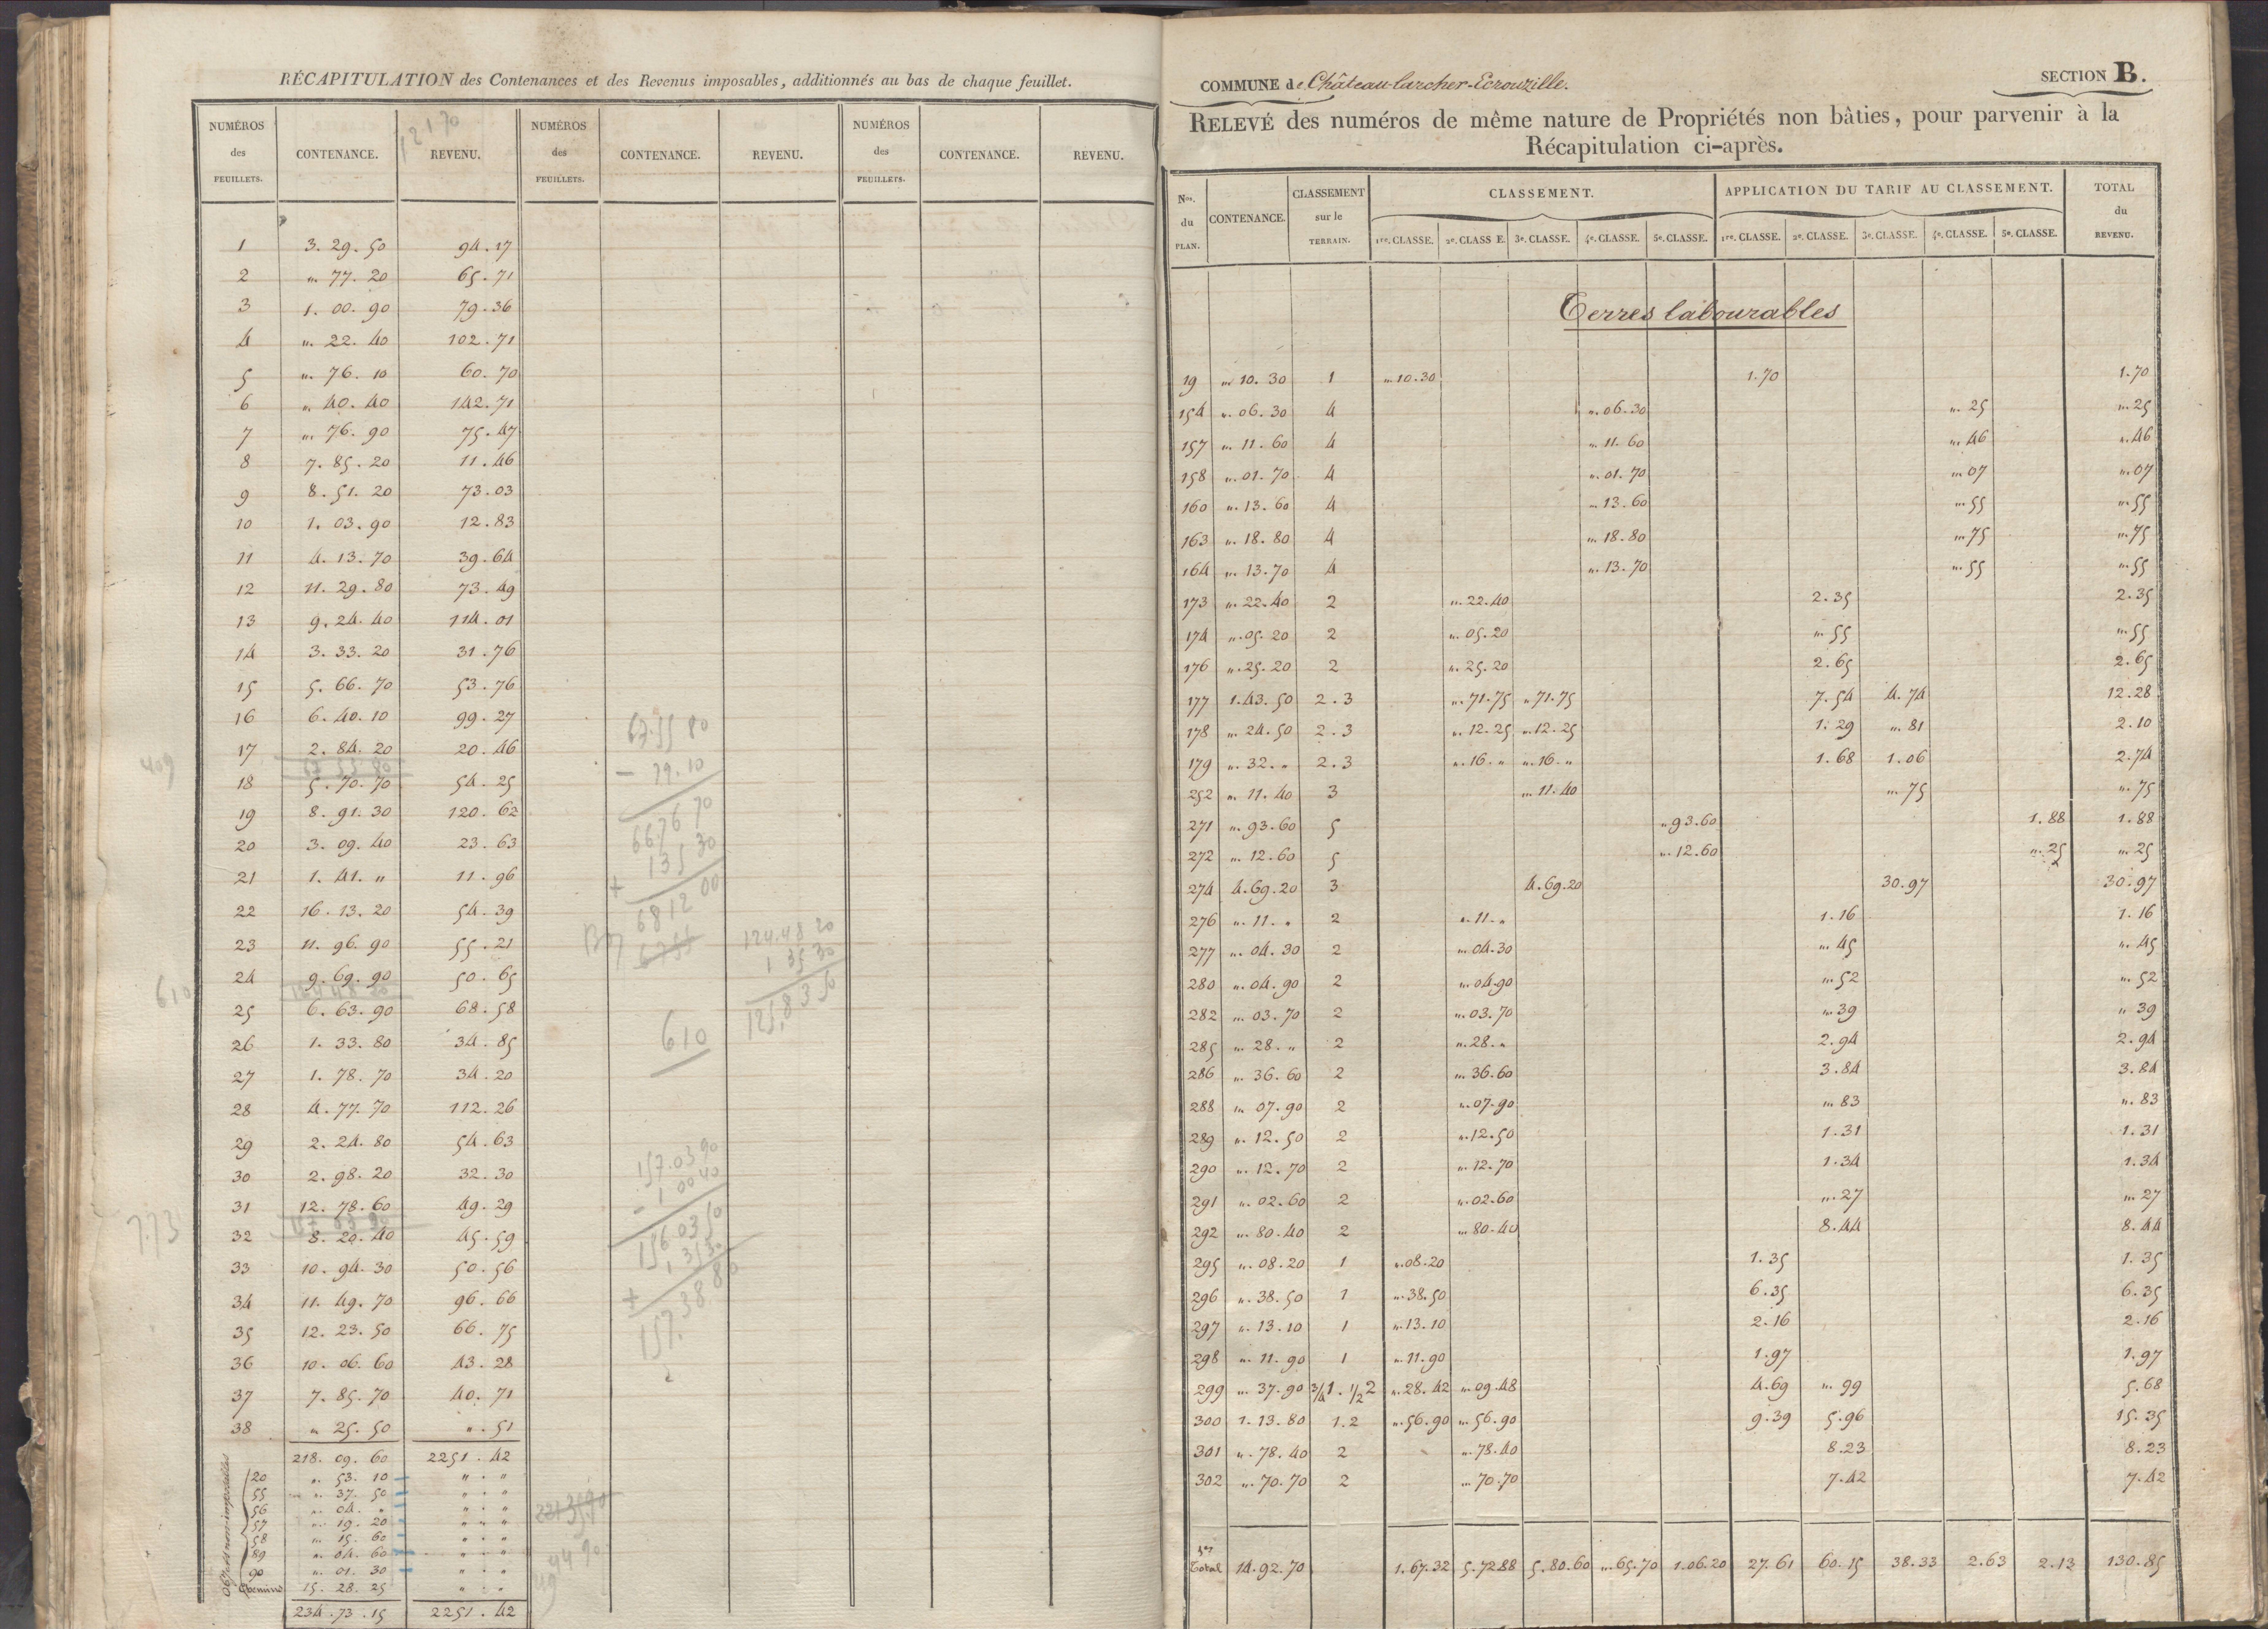 RÉCAPITULATION des Contenances et des Revenus imposables, additionnés au bas de chaque feuillet.
NUMÉROS des FEUILLETS. CONTENANCE. REVENU. NUMÉROS des FEUILLETS. CONTENANCE. REVENU. NUMÉROS des FEUILLETS. CONTENANCE. REVENU.
1 3. 29. 50 94. 17
2 „. 77. 20 65. 71
3 1. 00. 90 79. 36
4 „. 22. 40 102. 71
5 „. 76. 10 60. 70
6 „. 40. 40 142. 71
7 „. 76. 90 75. 47
8 7. 85. 20 11. 46
9 8. 51. 20 73. 03
10 1. 03. 90 12. 83
11 4. 13. 70 39. 64
12 11. 29. 80 73. 49
13 9. 24. 40 114. 01
14 3. 33. 20 31. 76
15 5. 66. 70 53. 76
16 6. 40. 10 99. 27
17 2. 84. 20 20. 46
409
18 5. 70. 70 54. 25
19 8. 91. 30 120. 62
20 3. 09. 40 23. 63
21 1. 41. „ 11. 96
22 16. 13. 20 54. 39
23 11. 96. 90 55. 21
24 9. 69. 90 50. 65
610
25 6. 63. 90 68. 58
26 1. 33. 80 34. 85
27 1. 78. 70 34. 20
28 4. 77. 70 112. 26
29 2. 24. 80 54. 63
30 2. 98. 20 32. 30
31 12. 78. 60 49. 29
773
32 8. 20. 40 45. 59
33 10. 94. 30 50. 56
34 11. 49. 70 96. 66
35 12. 23. 50 66. 75
36 10. 06. 60 43. 28
37 7. 85. 70 40. 71
38 „ 25. 50 „. 51
218. 09. 60 2251. 42
Objets non imposables
20 „. 53. 10 „ . „
55 „. 37. 50 „ . „
56 „. 04. „ „ . „
57 „. 19. 20 „ . „
58 „. 15. 60 „ . „
89 „. 04. 60 „ . „
90 „. 01. 30 „ . „
Chemins 15. 28. 25 „ . „
234. 73. 15 2251. 42
67.55 80
- 79.10
66.76 70
+ 135 30
6812 00
124.48 20
1 35 30
125,83 50
610
157.03 90
- 1 00 40
156.03 50
+ 1,35 30
157.38 80
COMMUNE de Château-larcher-Ecrouzille.
SECTION B.
RELEVÉ des numéros de même nature de Propriétés non bâties, pour parvenir à la
Récapitulation ci-après.
Nos. du PLAN. CONTENANCE. CLASSEMENT sur le TERRAIN. CLASSEMENT. APPLICATION DU TARIF AU CLASSEMENT. TOTAL du REVENU.
1re. CLASSE. 2e. CLASSE. 3e. CLASSE. 4e. CLASSE. 5e. CLASSE. 1re. CLASSE. 2e. CLASSE. 3e. CLASSE. 4e. CLASSE. 5e. CLASSE.
Terres labourables
19 „. 10. 30 1 „. 10. 30 1. 70 1. 70
154 „. 06. 30 4 „. 06. 30 „. 25 „. 25
157 „. 11. 60 4 „. 11. 60 „. 46 „. 46
158 „. 01. 70 4 „. 01. 70 „. 07 „. 07
160 „. 13. 60 4 „. 13. 60 „. 55 „. 55
163 „. 18. 80 4 „. 18. 80 „. 75 „. 75
164 „. 13. 70 4 „. 13. 70 „. 55 „. 55
173 „. 22. 40 2 „. 22. 40 2. 35 2. 35
174 „. 05. 20 2 „. 05. 20 „. 55 „. 55
176 „. 25. 20 2 „. 25. 20 2. 65 2. 65
177 1. 43. 50 2. 3 „. 71. 75 „. 71. 75 7. 54 4. 74 12. 28
178 „. 24. 50 2. 3 „. 12. 25 „. 12. 25 1. 29 „. 81 2. 10
179 „. 32. „ 2. 3 „. 16. „ „. 16. „ 1. 68 1. 06 2. 74
252 „. 11. 40 3 „. 11. 40 „. 75 „. 75
271 „. 93. 60 5 „. 93. 60 1. 88 1. 88
272 „. 12. 60 5 „. 12. 60 „. 25 „. 25
274 4. 69. 20 3 4. 69. 20 30. 97 30. 97
276 „. 11. „ 2 „. 11. „ 1. 16 1. 16
277 „. 04. 30 2 „. 04. 30 „. 45 „. 45
280 „. 04. 90 2 „. 04. 90 „. 52 „. 52
282 „. 03. 70 2 „. 03. 70 „. 39 „. 39
285 „. 28. „ 2 „. 28. „ 2. 94 2. 94
286 „. 36. 60 2 „. 36. 60 3. 84 3. 84
288 „. 07. 90 2 „. 07. 90 „. 83 „. 83
289 „. 12. 50 2 „. 12. 50 1. 31 1. 31
290 „. 12. 70 2 „. 12. 70 1. 34 1. 34
291 „. 02. 60 2 „. 02. 60 „. 27 „. 27
292 „. 80. 40 2 „. 80. 40 8. 44 8. 44
295 „. 08. 20 1 „. 08. 20 1. 35 1. 35
296 „. 38. 50 1 „. 38. 50 6. 35 6. 35
297 „. 13. 10 1 „. 13. 10 2. 16 2. 16
298 „. 11. 90 1 „. 11. 90 1. 97 1. 97
299 „. 37. 90 3/4 1. 1/2 2 „. 28. 42 „. 09. 48 4. 69 „. 99 5. 68
300 1. 13. 80 1. 2 „. 56. 90 „. 56. 90 9. 39 5. 96 15. 35
301 „. 78. 40 2 „. 78. 40 8. 23 8. 23
302 „. 70. 70 2 „. 70. 70 7. 42 7. 42
1er Total 14. 92. 70 1. 67. 32 5. 72. 88 5. 80. 60 „. 65. 70 1. 06. 20 27. 61 60. 15 38. 33 2. 63 2. 13 130. 85